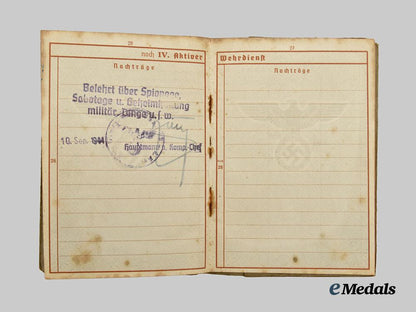 26
noch IV. Aktiver
Nachträge
Belehrt über Spionage,
Sabotage u. Geheimhaltung
militär. Dinge u.s.w.
10. Sep. 1941
Hauptmann u. Komp.-Chef
26
27
Wehrdienst
Nachträge
eMedals